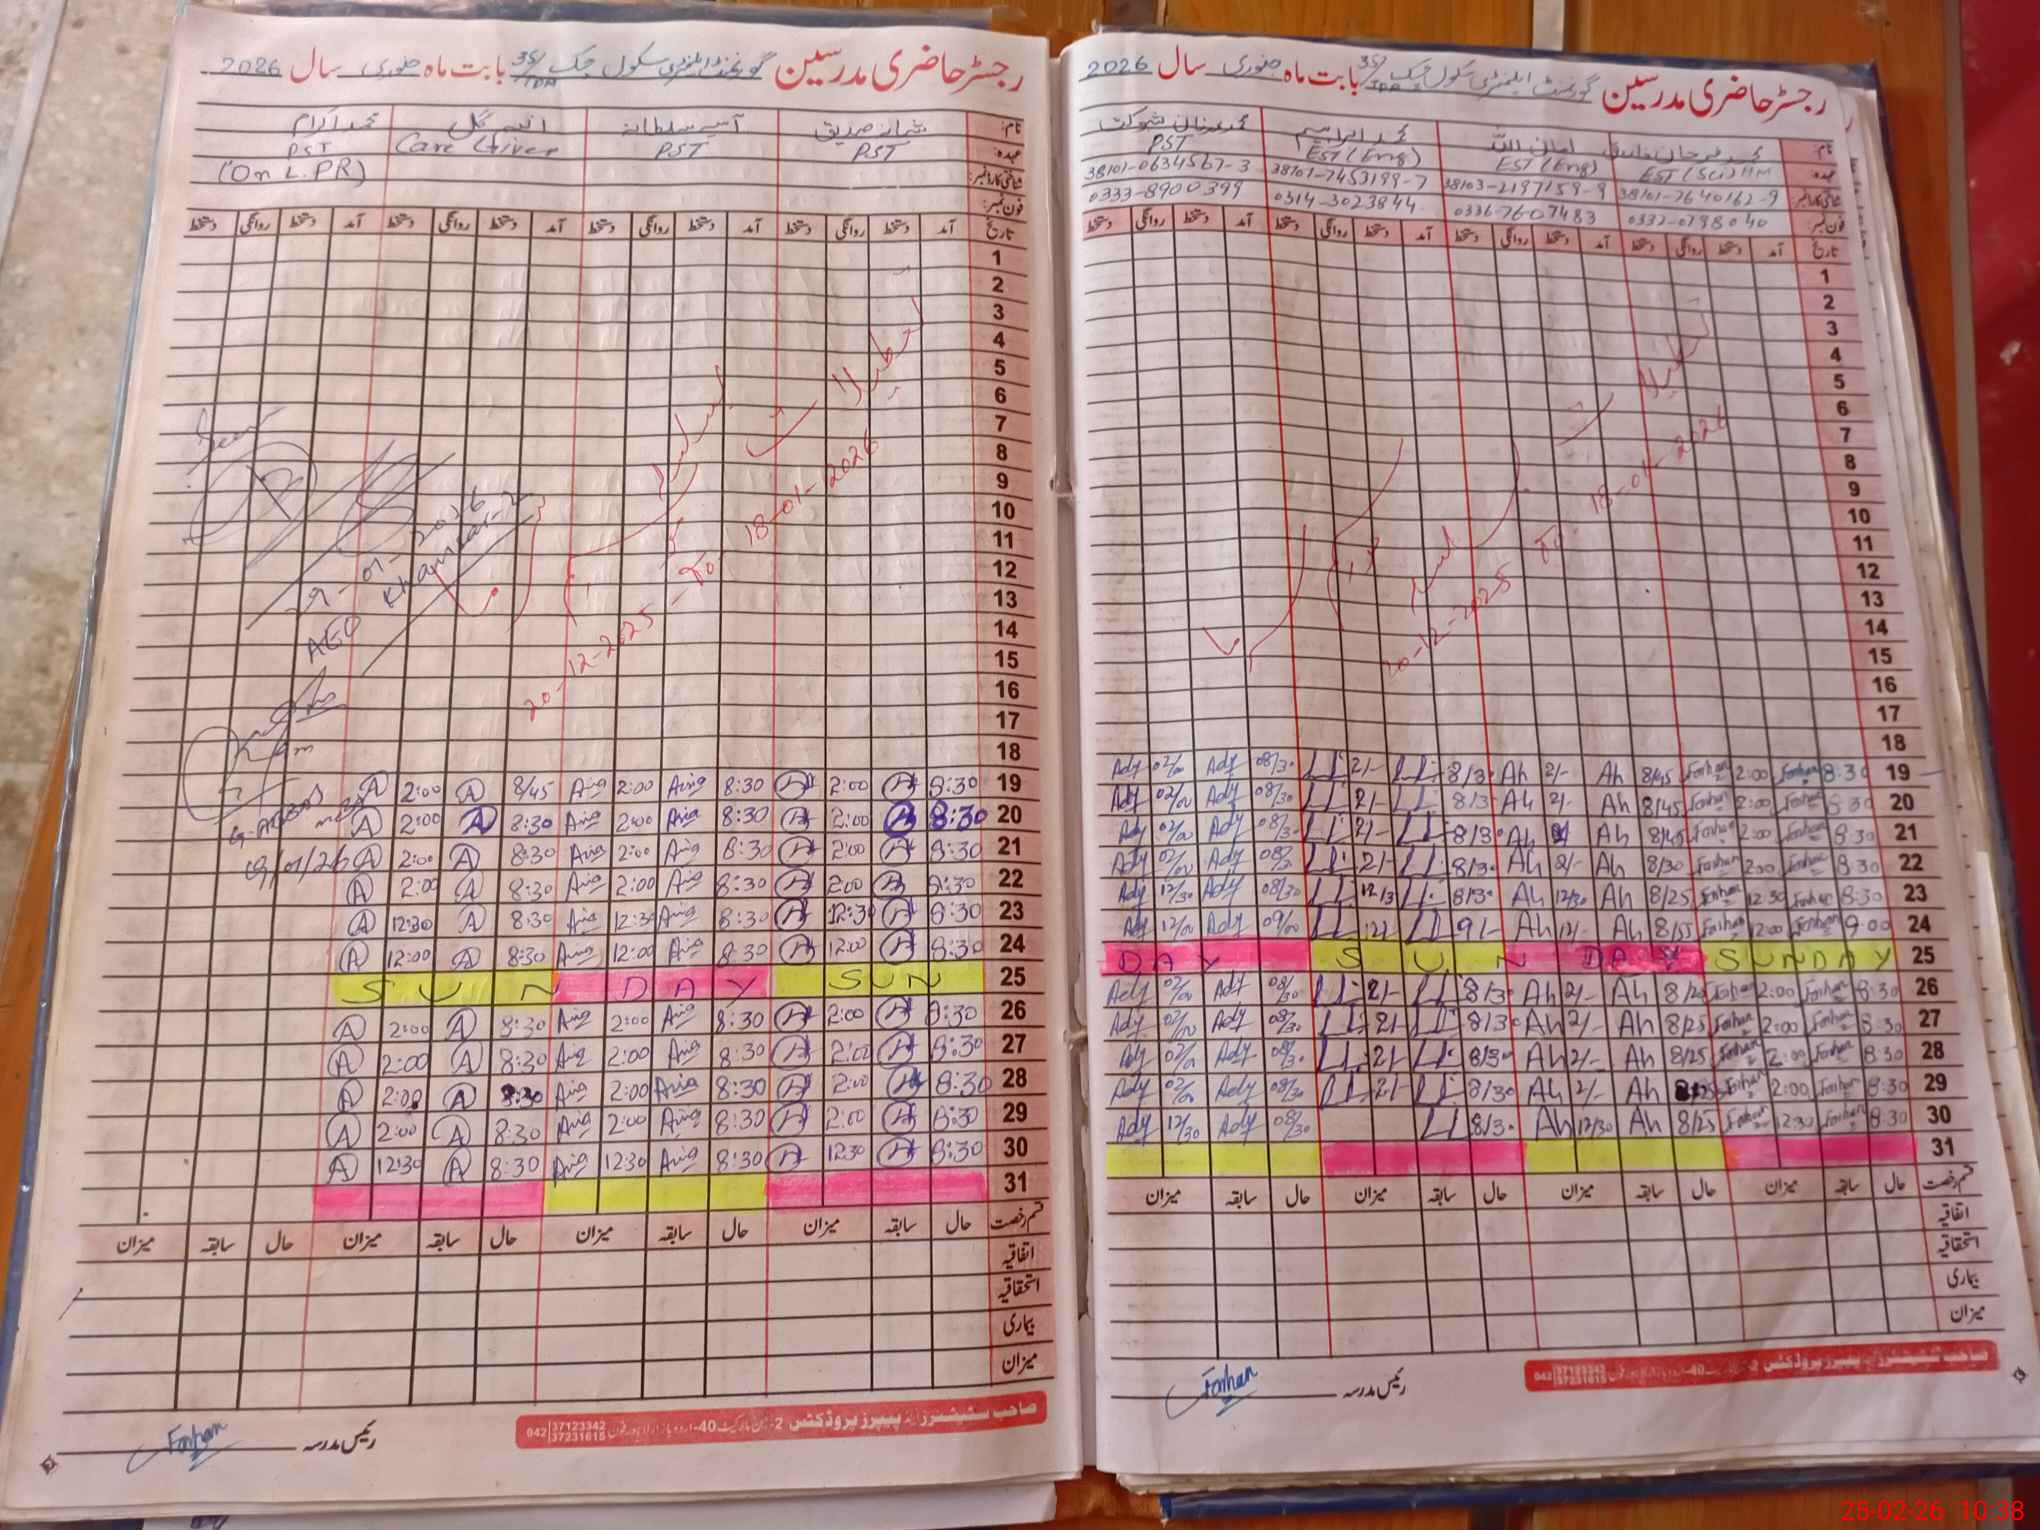 رجسٹر حاضری مدرسین گورنمنٹ ایلیمنٹری سکول چک 35/TDA بابت ماہ جنوری سال 2026
نام: شبانہ صدیق آسیہ سلطانہ انیسہ گل محمد اکرام
عہدہ: PST PST Care Giver PST
شناختی کارڈ نمبر: (On L.PR)
فون نمبر:
تاریخ آمد دستخط روانگی دستخط آمد دستخط روانگی دستخط آمد دستخط روانگی دستخط آمد دستخط روانگی دستخط
1
2
3
4
5
6
7
8
9
10
11
12
13
14
15
16
17
18
تعطیلات
بسلسلہ
20-12-2025 To 18-01-2026
Seen
29-01-2026
AEO Khansar-2
19/01/26
19 8:30 2:00 8:30 Asia 2:00 Asia 8/45 A 2:00 A
20 8:30 2:00 8:30 Asia 2:00 Asia 8:30 A 2:00 A
21 8:30 2:00 8:30 Asia 2:00 Asia 8:30 A 2:00 A
22 8:30 2:00 8:30 Asia 2:00 Asia 8:30 A 2:00 A
23 8:30 12:30 8:30 Asia 12:30 Asia 8:30 A 12:30 A
24 8:30 12:00 8:30 Asia 12:00 Asia 8:30 A 12:00 A
25 SUN DAY SUN
26 8:30 2:00 8:30 Asia 2:00 Asia 8:30 A 2:00 A
27 8:30 2:00 8:30 Asia 2:00 Asia 8:30 A 2:00 A
28 8:30 2:00 8:30 Asia 2:00 Asia 8:30 A 2:00 A
29 8:30 2:00 8:30 Asia 2:00 Asia 8:30 A 2:00 A
30 8:30 12:30 8:30 Asia 12:30 Asia 8:30 A 12:30 A
31
قسم رخصت حال سابقہ میزان حال سابقہ میزان حال سابقہ میزان حال سابقہ میزان
اتفاقیہ
استحقاقیہ
بیماری
میزان
صاحب سٹیشنرز اینڈ پیپرز پروڈکٹس 042 37123342 37231615
رئیس مدرسہ Farhan
رجسٹر حاضری مدرسین گورنمنٹ ایلیمنٹری سکول چک 35/TDA بابت ماہ جنوری سال 2026
نام: محمد فرحان امان اللہ محمد ابراہیم محمد عرفان شوکت
عہدہ: EST (Sci) HM EST (Eng) EST (Eng) PST
شناختی کارڈ نمبر: 38101-7640162-9 38103-2197159-9 38101-7453199-7 38101-0634567-3
فون نمبر: 0332-0798040 0336-7607483 0314-3023844 0333-8900399
تاریخ آمد دستخط روانگی دستخط آمد دستخط روانگی دستخط آمد دستخط روانگی دستخط آمد دستخط روانگی دستخط
1
2
3
4
5
6
7
8
9
10
11
12
13
14
15
16
17
18
تعطیلات
بسلسلہ
20-12-2025 To 18-01-2026
19 8:30 Farhan 2:00 Farhan 8/45 Ah 2/- Ah 8/30 2/- 08/30 Ady 02/00 Ady
20 8:30 Farhan 2:00 Farhan 8/45 Ah 2/- Ah 8/30 2/- 08/30 Ady 02/00 Ady
21 8:30 Farhan 2:00 Farhan 8/45 Ah Ah 8/30 2/- 08/30 Ady 02/00 Ady
22 8:30 Farhan 2:00 Farhan 8/30 Ah 2/- Ah 8/30 2/- Ady 02/00 Ady
23 8:30 Farhan 12:30 Farhan 8/25 Ah 12/30 Ah 8/30 12/3 08/30 Ady 12/30 Ady
24 9:00 Farhan 12:00 Farhan 8/55 Ah 12/- Ah 9/- 12/- 09/00 Ady 12/00 Ady
25 SUNDAY DAY SUN DAY
26 8:30 Farhan 2:00 Farhan 8/25 Ah 2/- Ah 8/30 2/- 08/30 Ady 02/00 Ady
27 8:30 Farhan 2:00 Farhan 8/25 Ah 2/- Ah 8/30 2/- 08/30 Ady 02/00 Ady
28 8:30 Farhan 2:00 Farhan 8/25 Ah 2/- Ah 8/30 2/- 08/30 Ady 02/00 Ady
29 8:30 Farhan 2:00 Farhan 8/25 Ah 2/- Ah 8/30 2/- 08/30 Ady 02/00 Ady
30 8:30 Farhan 12:30 Farhan 8/25 Ah 12/30 Ah 8/30 08/30 Ady 12/30 Ady
31
قسم رخصت حال سابقہ میزان حال سابقہ میزان حال سابقہ میزان حال سابقہ میزان
اتفاقیہ
استحقاقیہ
بیماری
میزان
صاحب سٹیشنرز اینڈ پیپرز پروڈکٹس 042 37123342 37231615
رئیس مدرسہ Farhan
25-02-26 10:38